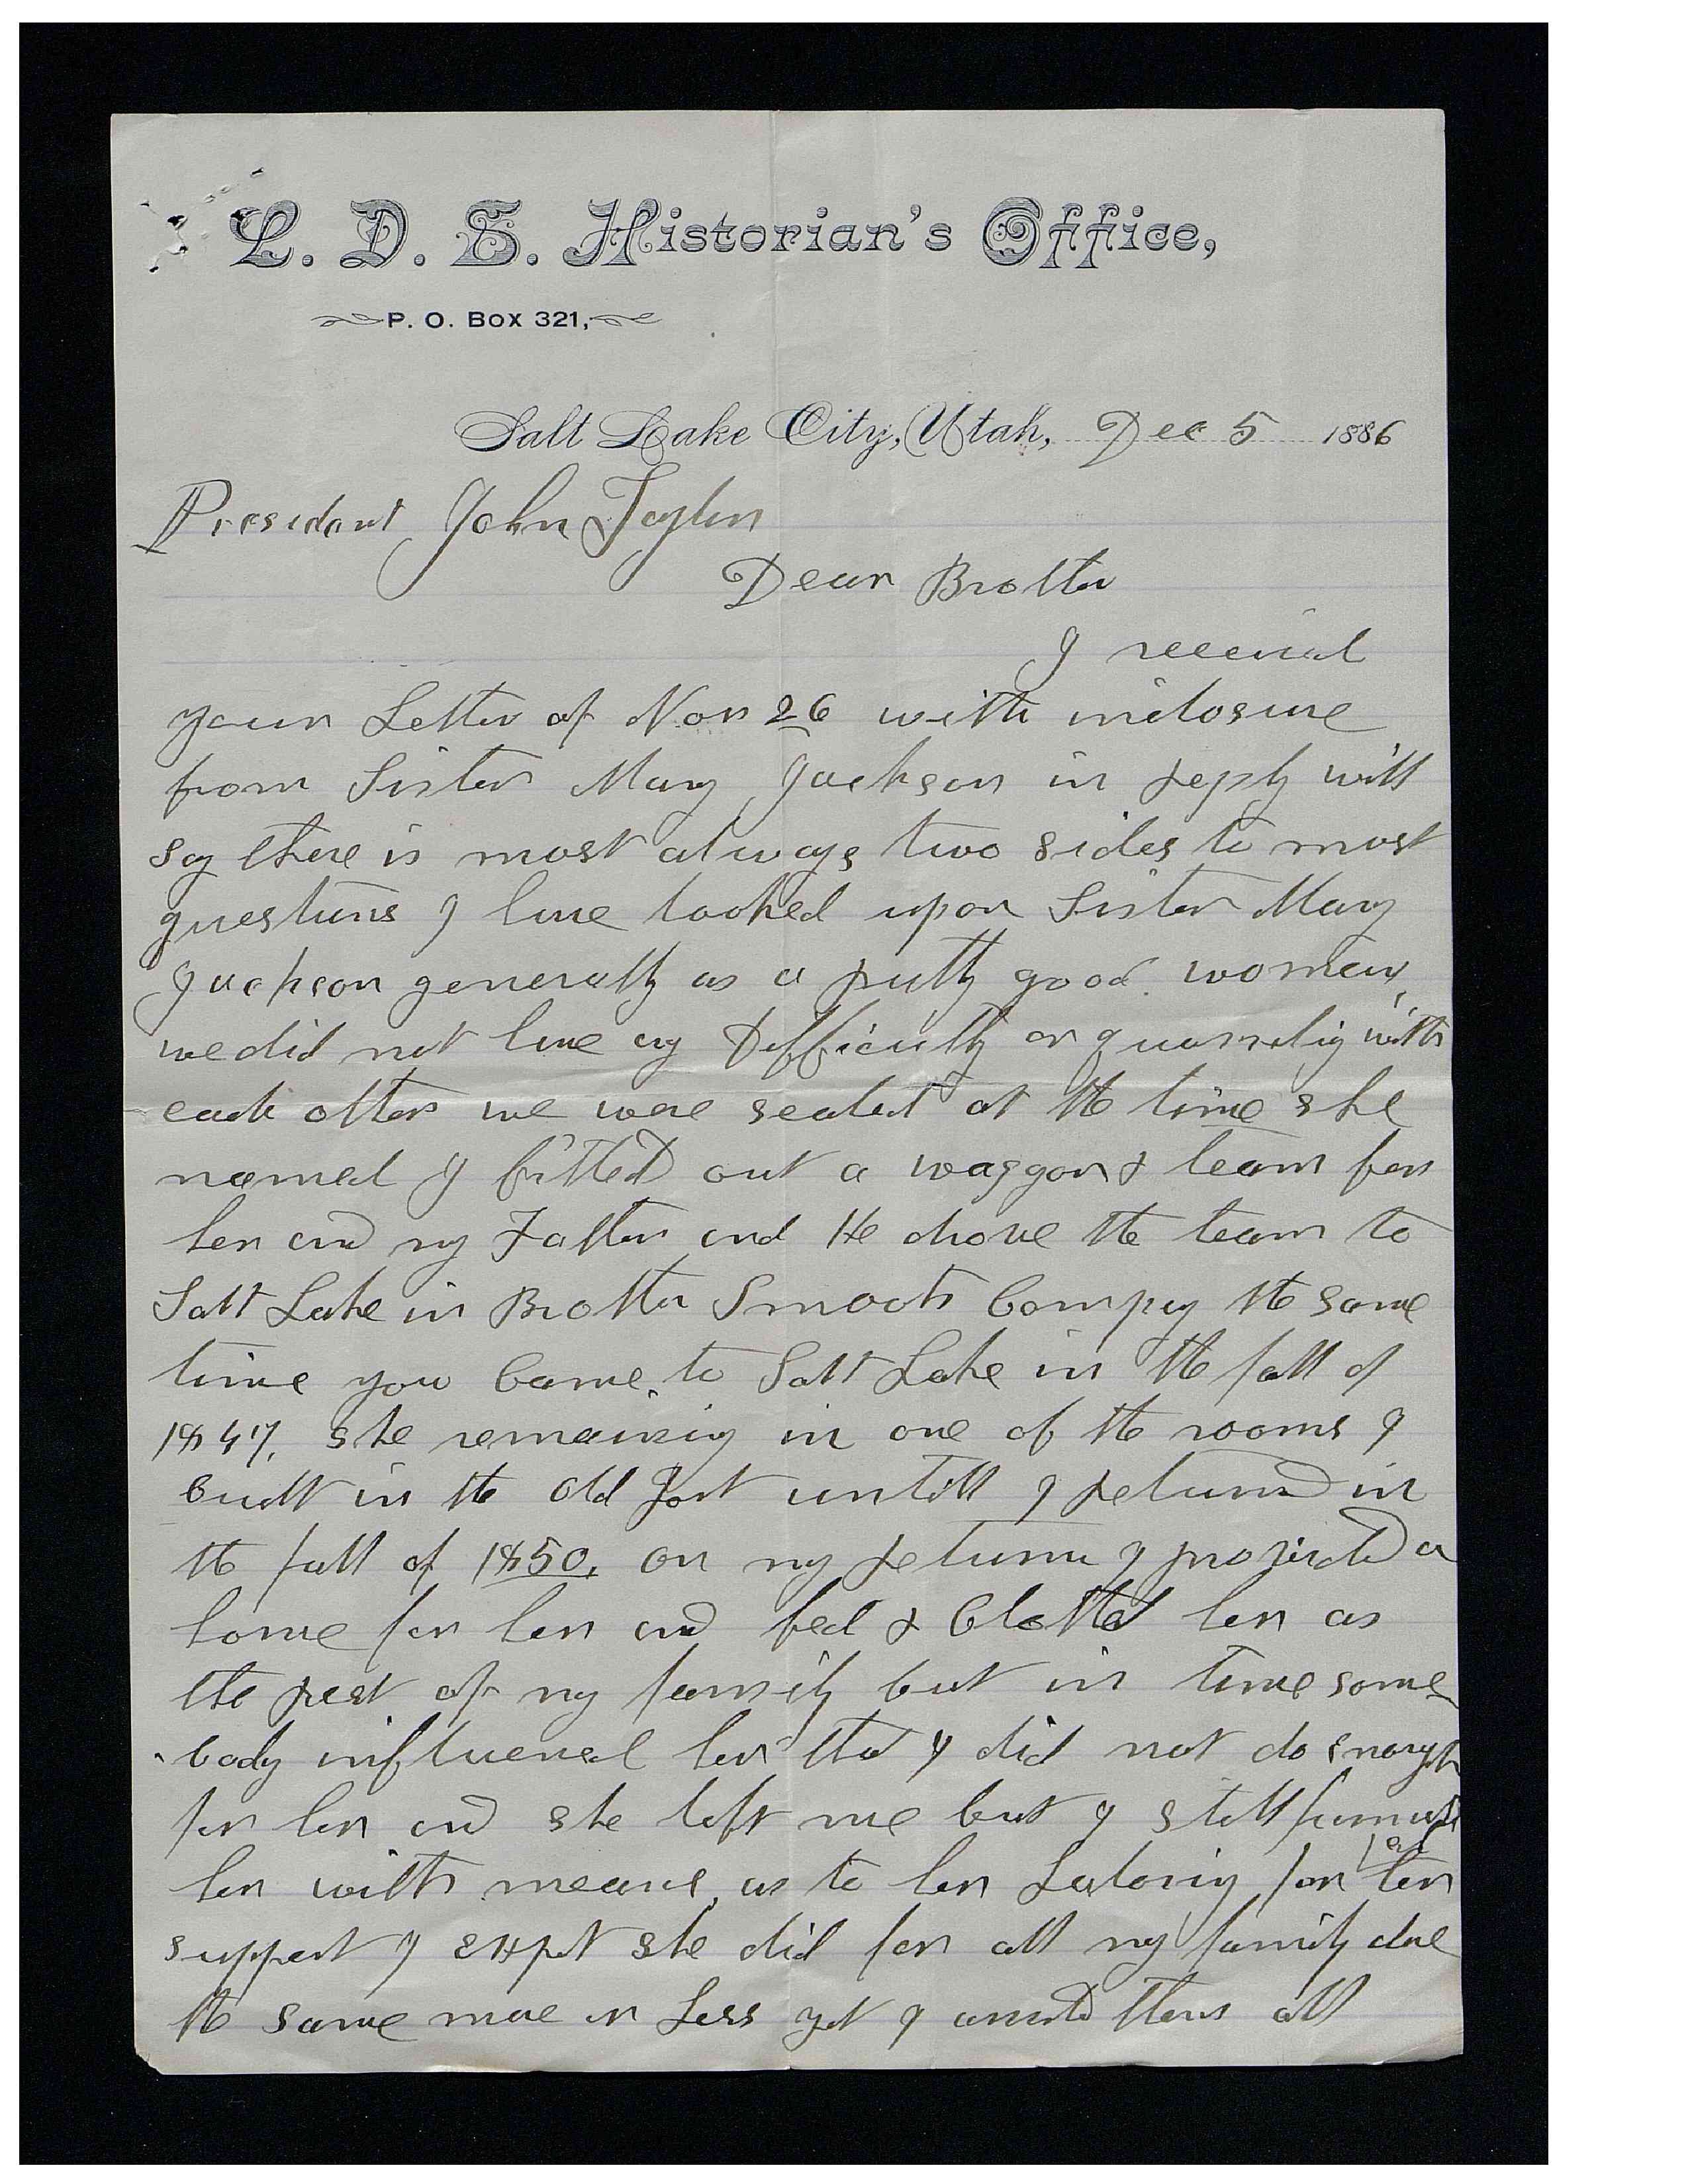 L. D. S. Historian's Office,
P. O. Box 321,
Salt Lake City, Utah, Dec 5 1886
President John Taylor
Dear Brother
I received
your Letter of Nov 26 with inclosure
from Sister Mary Jackson in reply will
say there is most always two sides to most
questions I have looked upon Sister Mary
Jackson generally as a pretty good woman,
we did not have any Difficulty or quarreling with
each other we were sealed at the time she
named I fitted out a waggon & team for
her and my Father and He drove the team to
Salt Lake in Brother Smoots Company the same
time you came to Salt Lake in the fall of
1847, she remaining in one of the rooms I
built in the old Fort untill I returned in
the fall of 1850, on my return I provided a
home for her and fed & Clothed her as
the rest of my family but in time some
body influenced her that I did not do enough
for her and she left me but I still furnish
her with means, as to her Laboring for her
support I expet she did for all my family due
the same more or Less yet I assisted them all